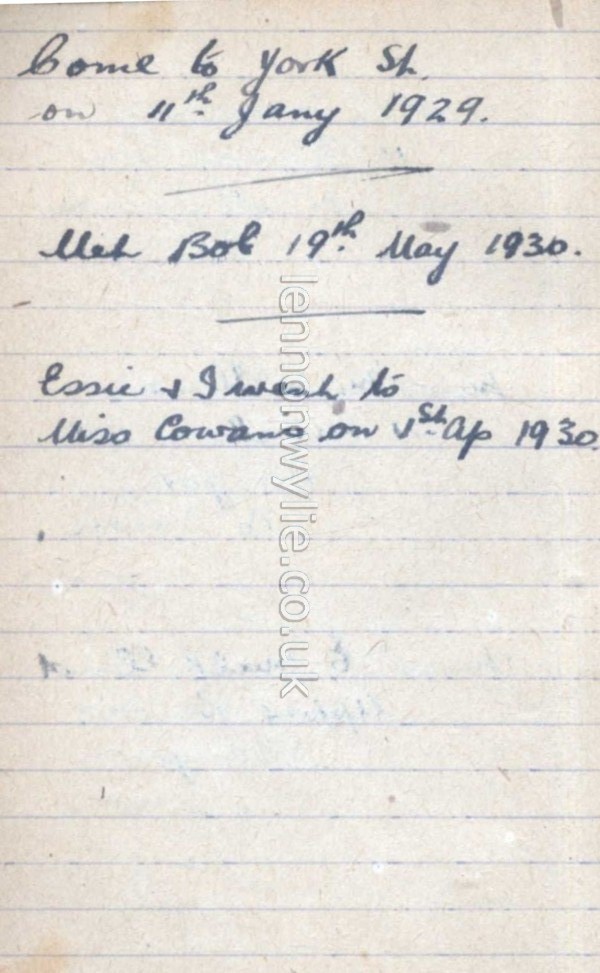 Come to York St.
on 11th Jany 1929.
Met Bob 19th May 1930.
Essie & I went to
Miss Cowans on 1st Ap 1930.
lennonwylie.co.uk